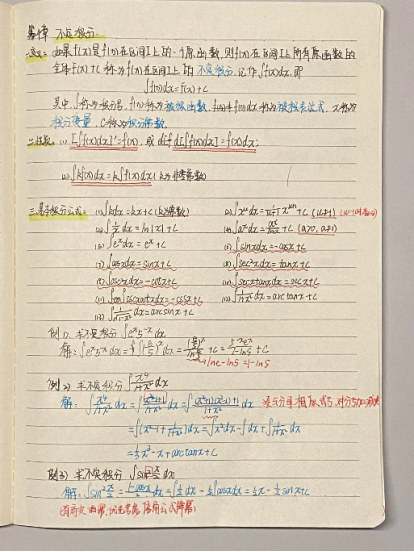 第四章 不定积分
一、定义：如果F(x)是f(x)在区间I上的一个原函数，则f(x)在区间I上所有原函数的
全体F(x)+C称为f(x)在区间I上的不定积分，记作∫f(x)dx，即
∫f(x)dx=F(x)+C
其中，∫称为积分号，f(x)称为被积函数，f(x)dx称为被积表达式，x称为
积分变量，C称为积分常数。
二、性质：(1) [∫f(x)dx]'=f(x)，或 d[∫f(x)dx]=f(x)dx；
(2) ∫kf(x)dx=k∫f(x)dx (k为非零常数)
三、基本积分公式：(1) ∫kdx=kx+C (k为常数) (2) ∫x^μ dx=1/(μ+1) x^(μ+1)+C (μ≠-1)
(3) ∫1/x dx=ln|x|+C (4) ∫a^x dx=a^x/lna+C (a>0, a≠1)
(5) ∫e^x dx=e^x+C (6) ∫sinxdx=-cosx+C
(7) ∫cosxdx=sinx+C (8) ∫sec²xdx=tanx+C
(9) ∫csc²xdx=-cotx+C (10) ∫secxtanxdx=secx+C
(11) ∫cscxcotxdx=-cscx+C (12) ∫1/(1+x²)dx=arctanx+C
(13) ∫1/√(1-x²) dx=arcsinx+C
例1) 求不定积分∫e^x 5^(-x) dx
解：∫e^x 5^(-x) dx=∫(e/5)^x dx=(e/5)^x/ln(e/5)+C=5^(-x)e^x/(1-ln5)+C
lne-ln5=1-ln5
例2) 求不定积分∫x⁴/(1+x²)dx
解：∫x⁴/(1+x²)dx=∫(x⁴-1+1)/(1+x²)dx=∫((x²+1)(x²-1)+1)/(1+x²)dx
=∫(x²-1+1/(1+x²))dx=∫x²dx-∫dx+∫1/(1+x²)dx
=1/3x³-x+arctanx+C
例3) 求不定积分∫sin²x/2 dx
解：∫sin²x/2 dx=∫(1-cosx)/2 dx=∫1/2dx-1/2∫cosxdx=1/2x-1/2sinx+C